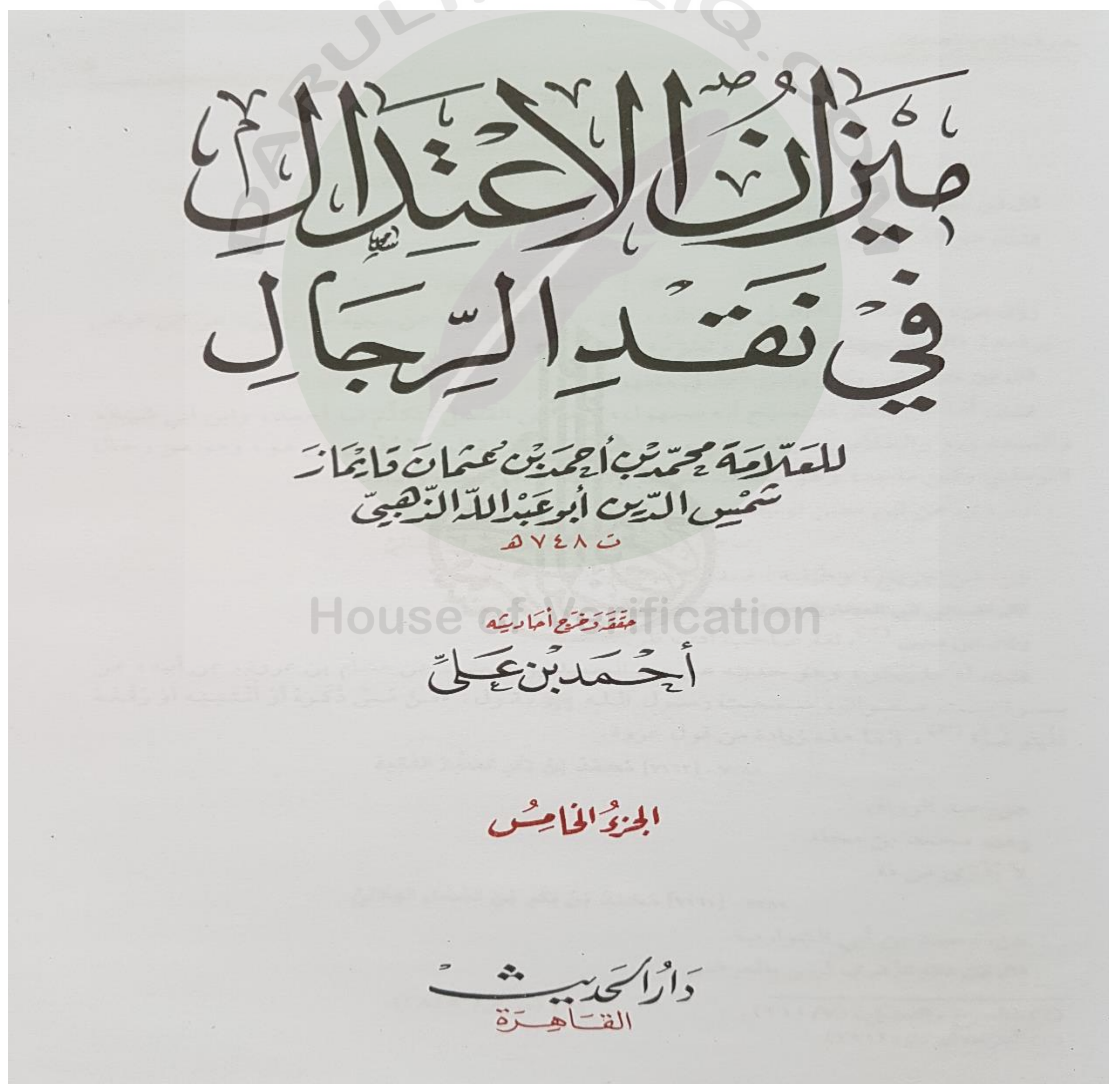 DARULTAHQIQ.COM
مِيْزَانُ الاعْتِدَالِ
فِيْ نَقْدِ الرِّجَالِ
للعَلّامَة محمّد بن أحمَد بن عُثمان قايمَاز
شَمْس الدّين أبو عَبْد اللّه الذّهبيّ
ت ٧٤٨ هـ
House of Verification
حقّقه وخرّج أحاديثه
أحْمَد بْن عَليّ
الجزءُ الخامِسُ
دَارُ الحَديث
القَاهِرَة